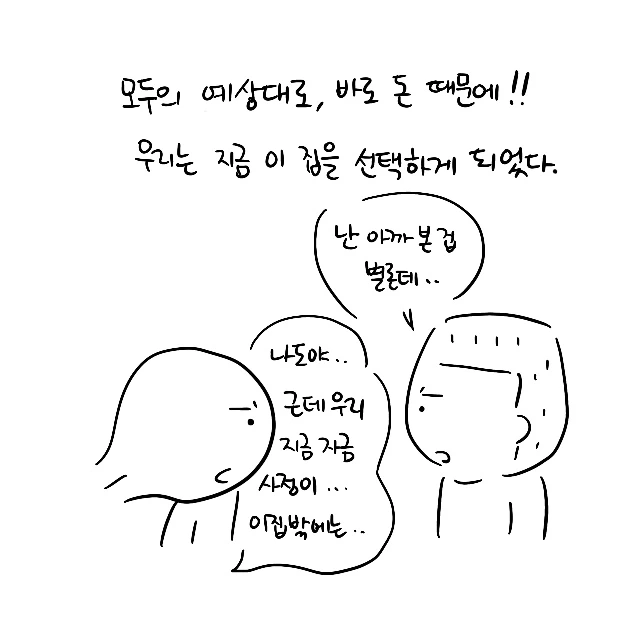 모두의 예상대로, 바로 돈 때문에!!
우리는 지금 이 집을 선택하게 되었다.
난 아까 본 겁
별론데..
나도야..
근데 우리
지금 자금
사정이...
이집밖에는..